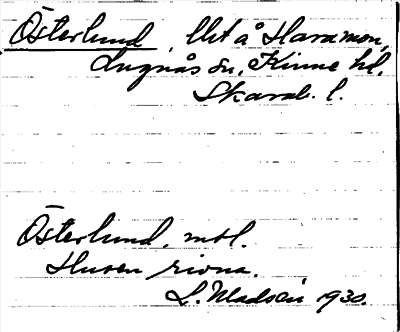 Österlund, llt å Haramon,
Lugnås sn, Kinne hd.
Skarab. l.
Österlund, mbl.
Husen rivna.
L. Madsén 1930.